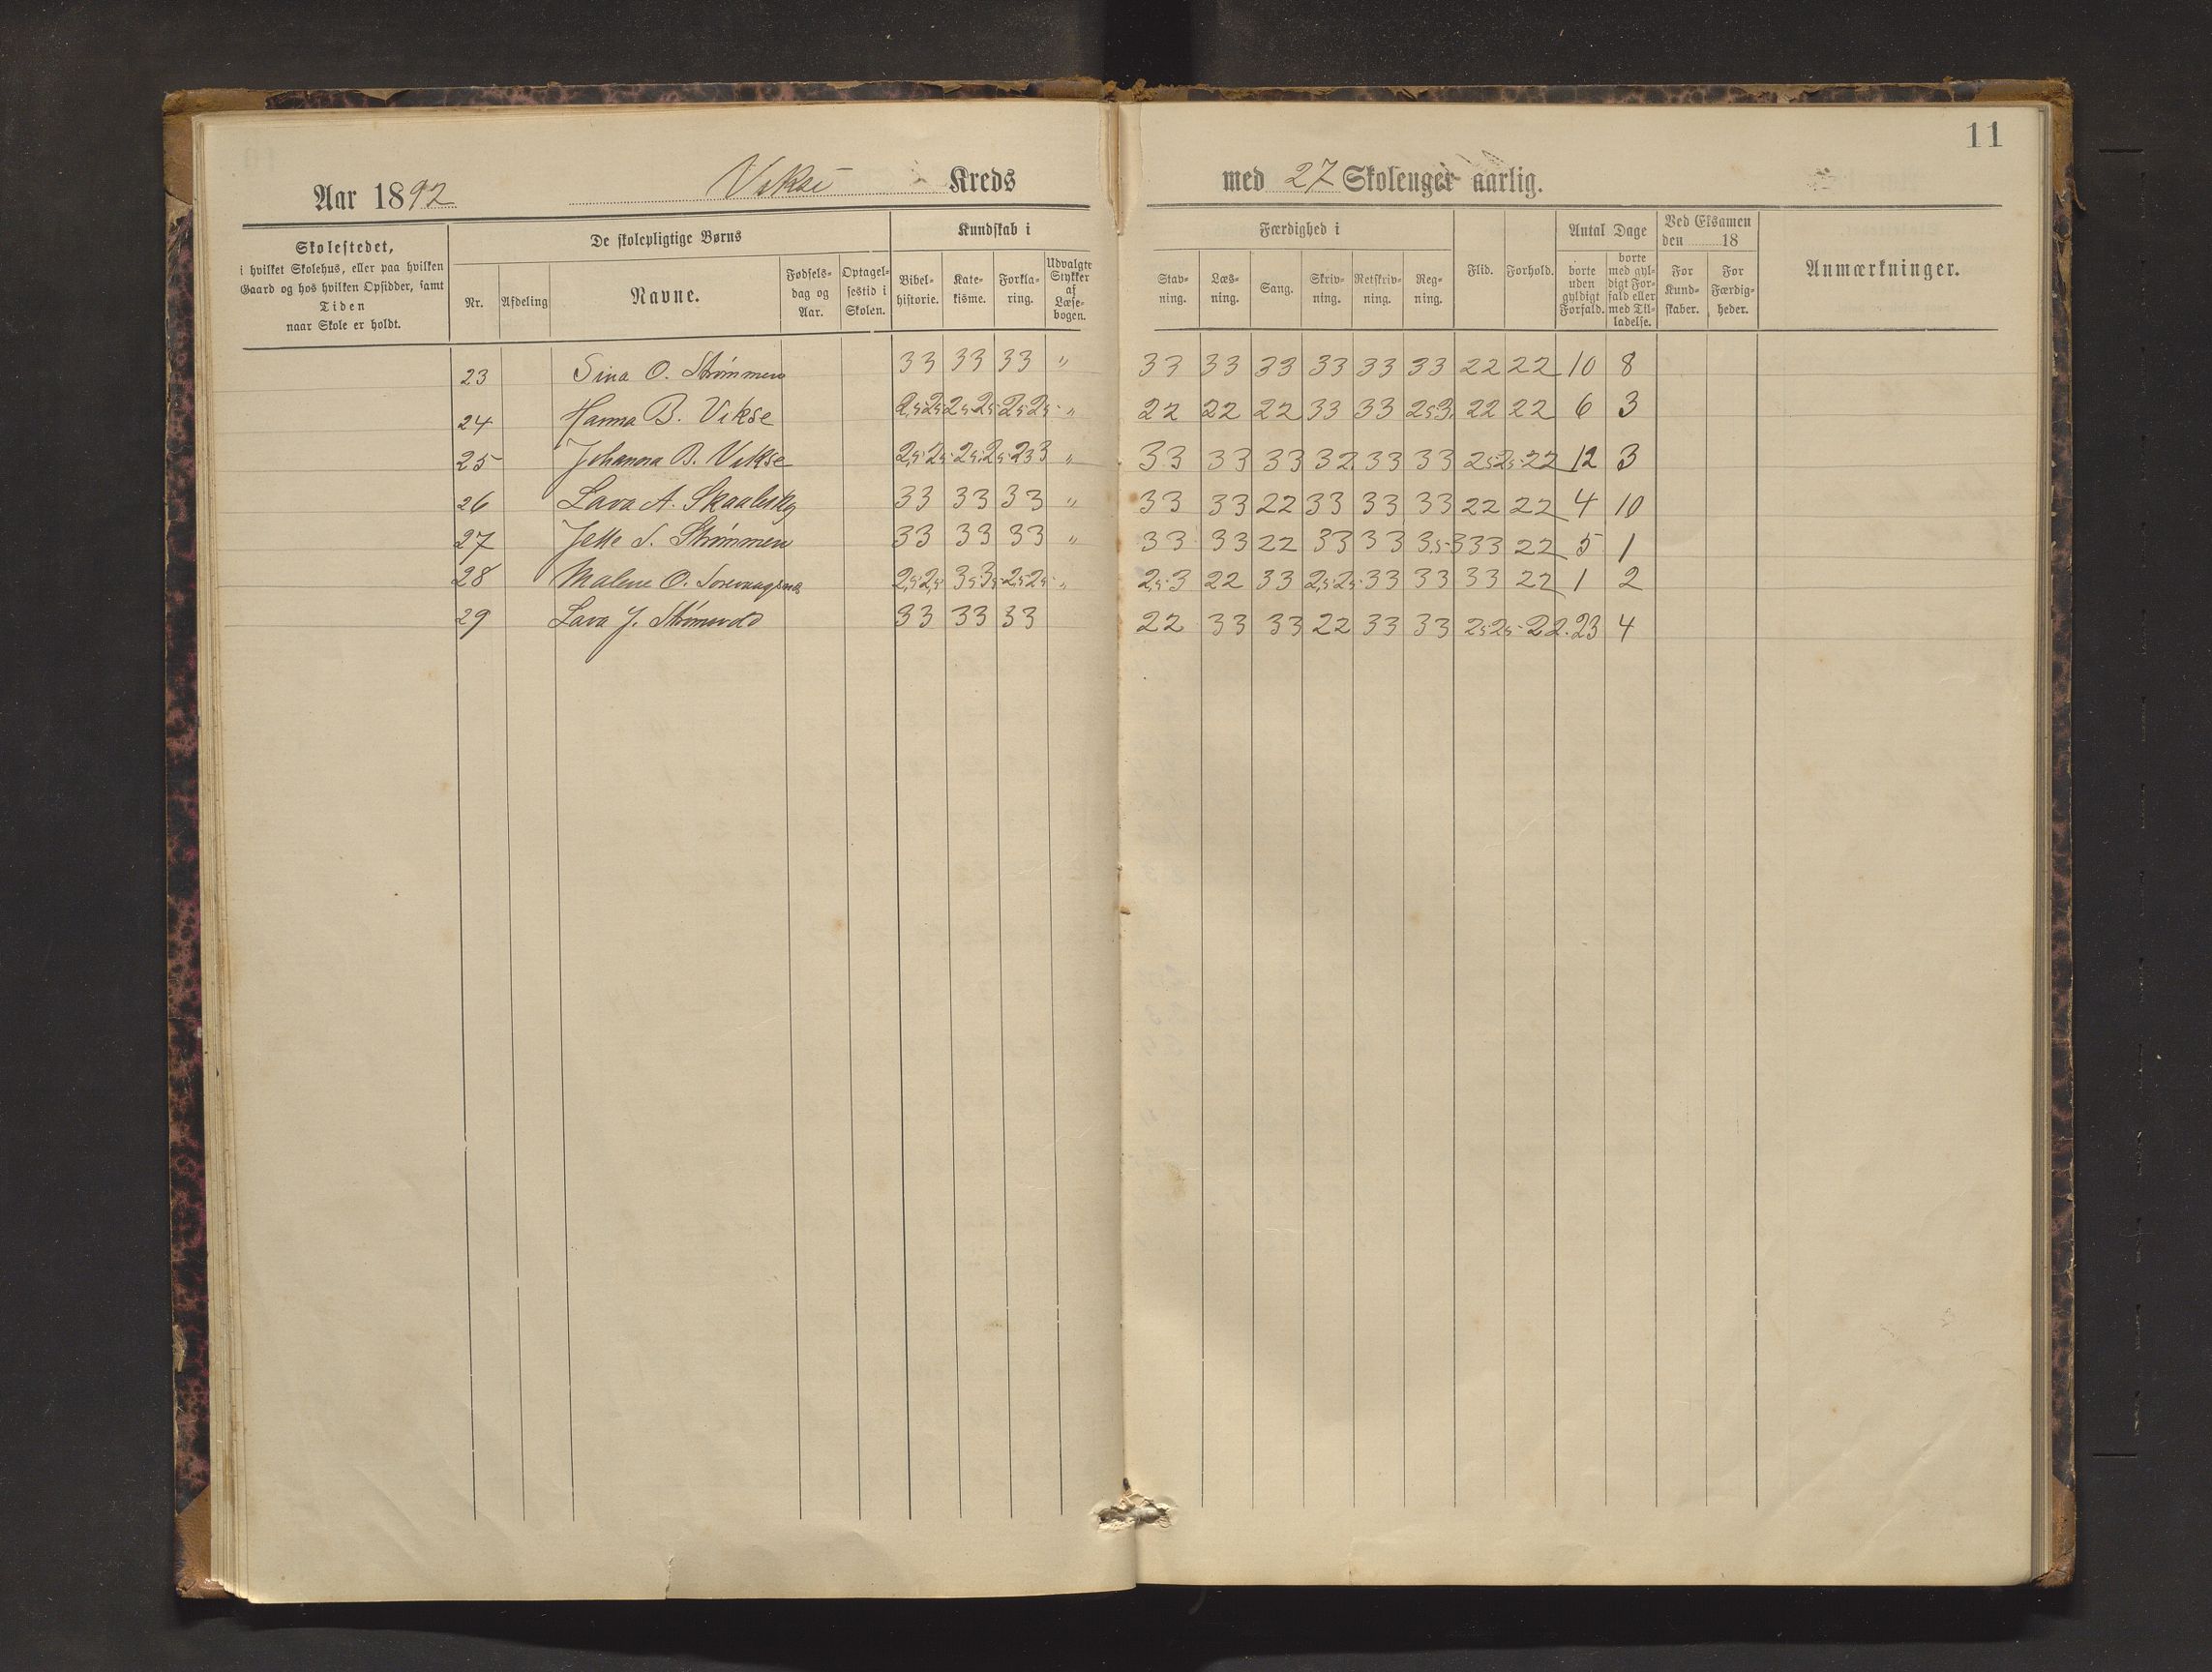 11
Aar 1892 Vikse Kreds med 27 Skoleuger aarlig.
Skolestedet,
i hvilket Skolehus, eller paa hvilken
Gaard og hos hvilken Opsidder, samt
Tiden
naar Skole er holdt.
De skolepligtige Børns
Nr.
Afdeling
Navne.
Fødsels-
dag og
Aar.
Optagel-
sestid i
Skolen.
Kundskab i
Bibel-
historie.
Kate-
kisme.
Forkla-
ring.
Udvalgte
Stykker
af
Læse-
bogen.
Færdighed i
Stav-
ning.
Læs-
ning.
Sang.
Skriv-
ning.
Retskriv-
ning.
Reg-
ning.
Flid.
Forhold.
Antal Dage
borte
uden
gyldigt
Forfald.
borte
med gyl-
digt For-
fald eller
med Til-
ladelse.
Ved Eksamen
den 18
For
Kund-
skaber.
For
Færdig-
heder.
Anmærkninger.
23 Sina O. Strømmen 33 33 33 " 33 33 33 33 33 33 22 22 10 8
24 Hanna B. Vikse 2,5 2,5 2,5 2,5 2,5 2,5 " 22 22 22 33 33 2,5 3 22 22 6 3
25 Johanna B. Vikse 2,5 2,5 2,5 2,5 2 3 3 " 33 33 33 32 33 33 2,5 2,5 22 12 3
26 Lava A. 33 33 33 " 33 33 22 33 33 33 22 22 4 10
27 Jette S. Strømmen 33 33 33 " 33 33 22 33 33 3,5 3 33 22 5 1
28 Malene O. 2,5 2,5 3,5 3,5 2,5 2,5 " 2,5 3 22 33 2,5 2,5 33 33 33 22 1 2
29 Lava J. 33 33 33 22 33 33 22 33 33 2,5 2,5 22 23 4